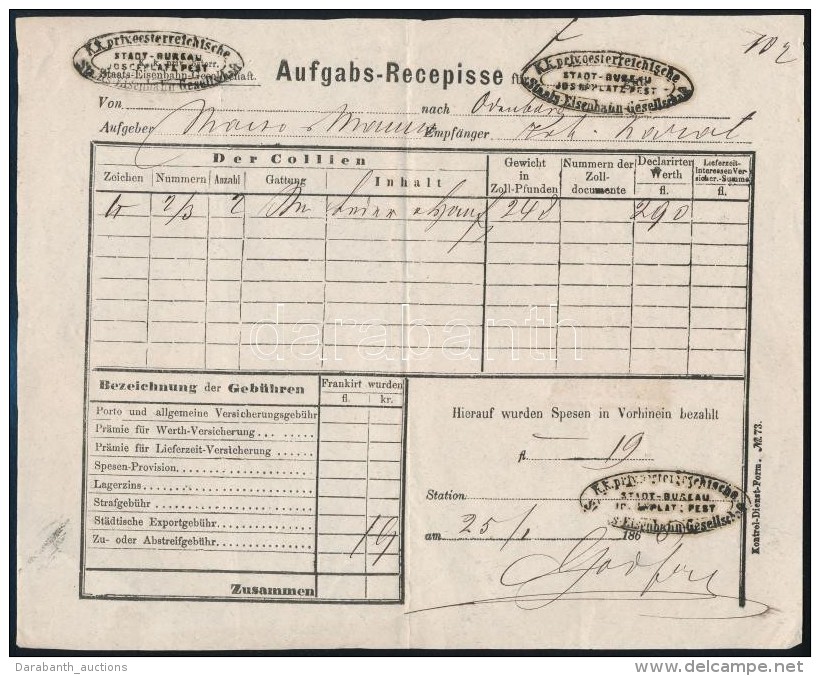 K.k. priv. oesterreichische
STADT-BUREAU
JOSEFPLATZ PEST
Staats-Eisenbahn-Gesellschaft
k. k. priv. österr.
Staats-Eisenbahn-Gesellschaft.
Aufgabs-Recepisse für
K.k. priv. oesterreichische
STADT-BUREAU
JOSEFPLATZ PEST
Staats-Eisenbahn-Gesellschaft
Von nach Odenburg
Aufgeber Empfänger
Der Collien
Zeichen Nummern Anzahl Gattung Inhalt
Gewicht in Zoll-Pfunden
Nummern der Zoll-documente
Declarirter Werth fl.
Lieferzeit-Interessen Versicher.-Summe fl.
2/3 2 248 290
darabanth
Bezeichnung der Gebühren Frankirt wurden
fl. kr.
Porto und allgemeine Versicherungsgebühr
Prämie für Werth-Versicherung
Prämie für Lieferzeit-Versicherung
Spesen-Provision
Lagerzins
Strafgebühr
Städtische Exportgebühr
Zu- oder Abstreifgebühr 19
Zusammen
Hierauf wurden Spesen in Vorhinein bezahlt
fl. 19
Station
K.k. priv. oesterreichische
STADT-BUREAU
JOSEFPLATZ PEST
Staats-Eisenbahn-Gesellschaft
am 25/1 186
Kontrol-Dienst-Form. № 73.
Darabanth_auctions
www.delcampe.net